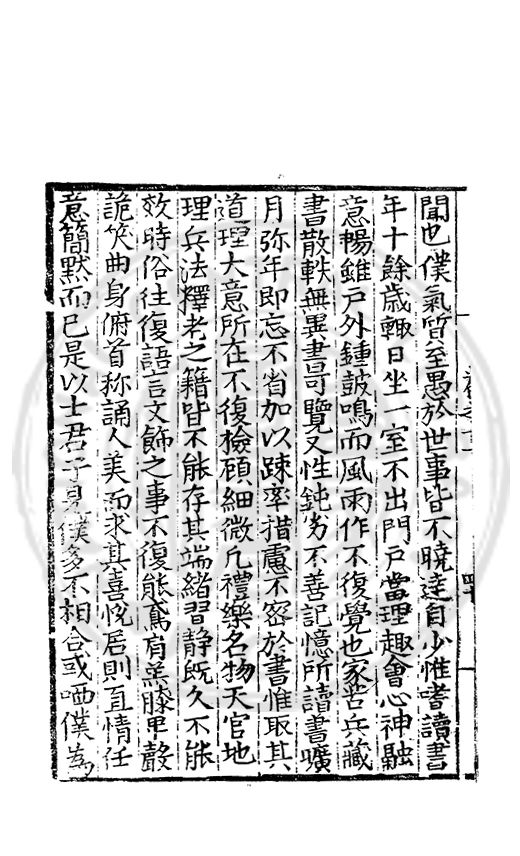 聞也僕氣質至愚於世事皆不曉達自少惟嗜讀書
年十餘歲輙日坐一室不出門戶當理趣會心神融
意暢雖戶外鍾鼓鳴而風雨作不復覺也家苦兵藏
書散軼無異書可覽又性鈍劣不善記憶所讀書曠
月弥年即忘不省加以踈率措慮不密於書惟取其
道理大意所在不復檢顧細微凢禮樂名物天官地
理兵法釋老之籍皆不能存其端緒習静既久不能
效時俗往復語言文飾之事不復能鳶肩羔膝卑聲
詭笑曲身俯首称誦人美而求其喜恱居則直情任
意簡默而已是以士君子見僕多不相合或哂僕為